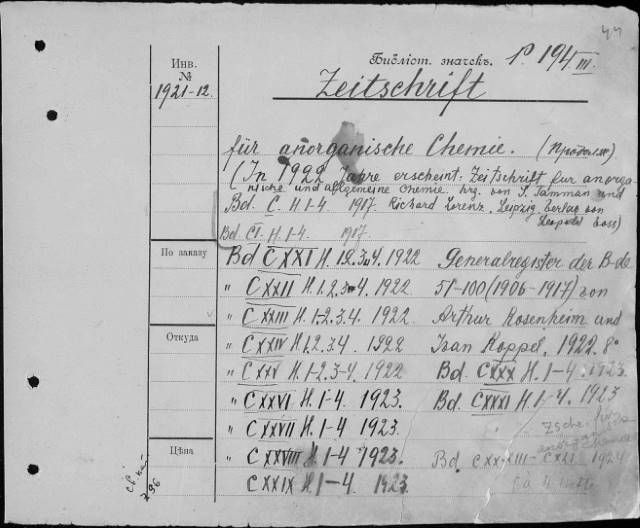 44
Библіот. значекъ. P 194 III.
Инв.
№
1921-12.
Zeitschrift
für anorganische Chemie. (Продолж)
(In 1922 Jahre erscheint: Zeitschrift für anorga-
nische und allgemeine Chemie. hrg. von S. Tamman und
Bd. C. H. 1-4. 1917. Richard Lorenz. Leipzig. Verlag von
Leopold Voss)
Bd. CI. H. 1-4. 1917.
По заказу
Bd CXXI H. 1.2.3 4. 1922
" CXXII H. 1.2.3 4. 1922
" CXXIII H. 1-2.3.4. 1922
Откуда
" CXXIV H. 1.2.3.4 1922
" CXXV H. 1-2.3-4. 1922
" CXXVI H. 1-4. 1923.
" CXXVII H. 1-4 1923.
Цѣна
" CXXVIII H. 1-4 1923.
CXXIX H. 1-4. 1923.
Generalregister der B-de
51-100 (1906-1917) von
Arthur Rosenheim und
Ivan Koppel. 1922. 8°
Bd. CXXX H. 1-4. 1923.
Bd. CXXXI H. 1-4. 1923
Zsche. für
anorgan
Bd. CXXXIII- 1924
796